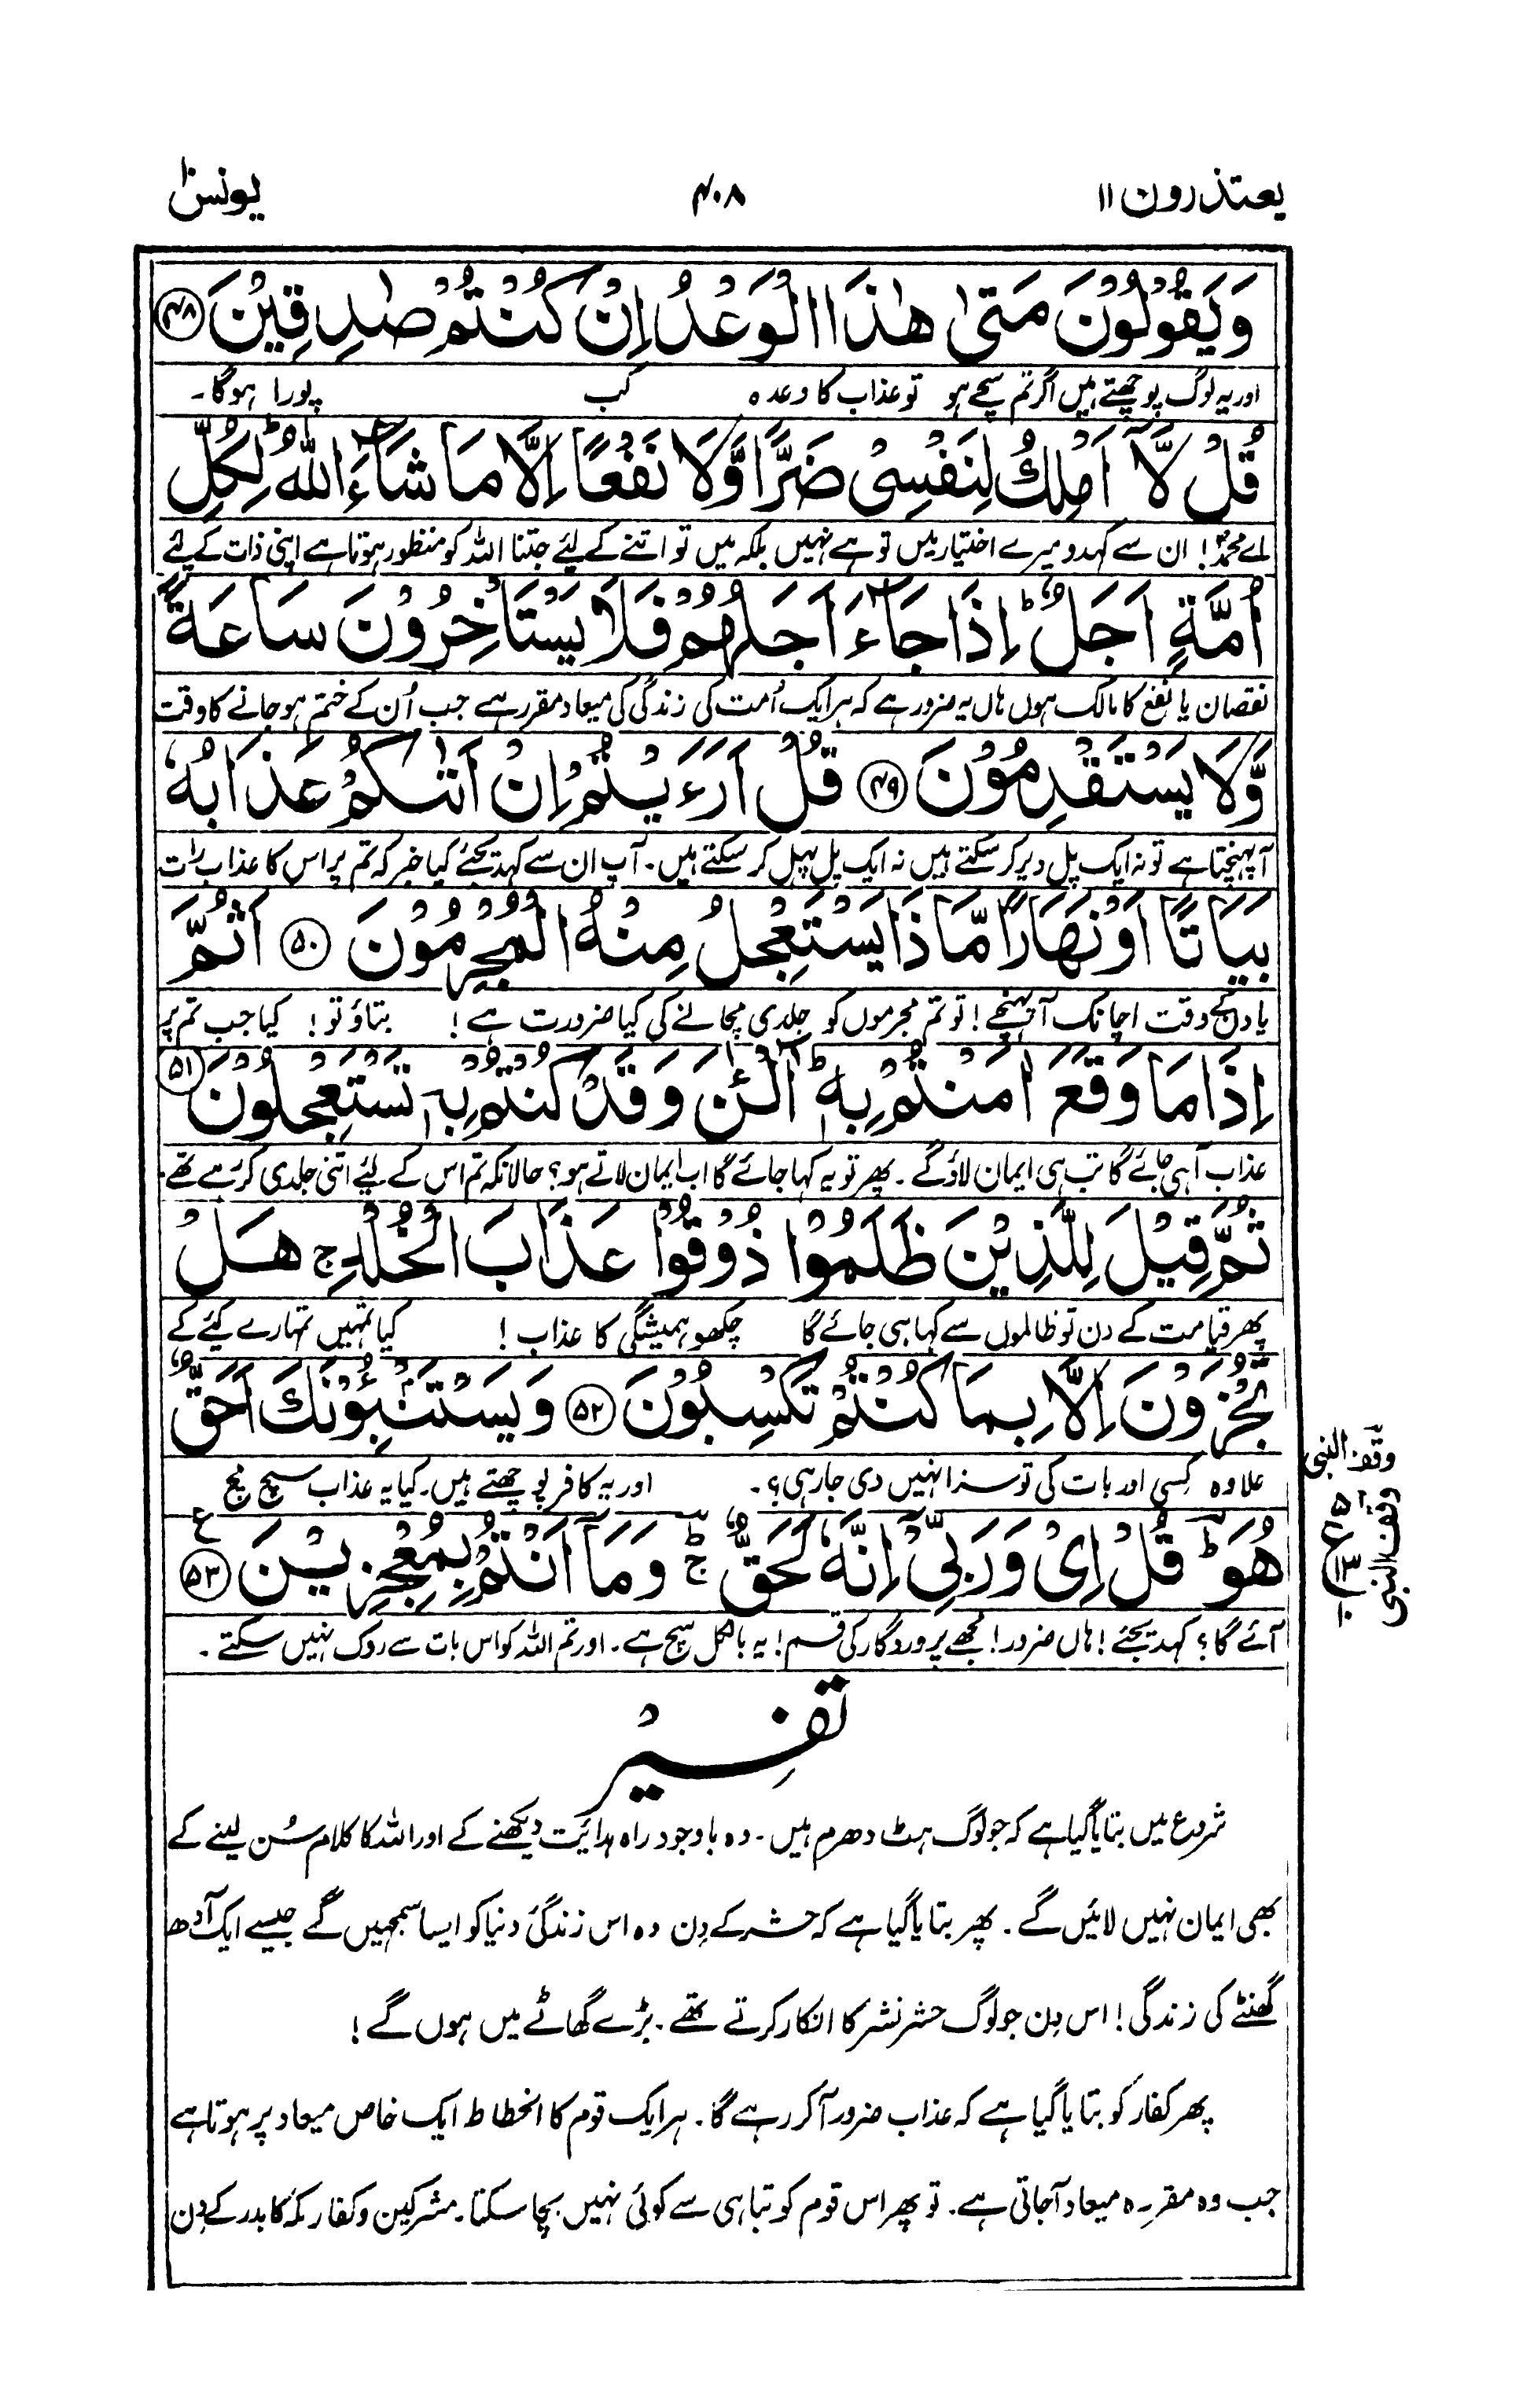 یعتذرون ۱۱
۴۰۸
یونس ۱۰
وَیَقُوْلُوْنَ مَتٰی هٰذَا الْوَعْدُ اِنْ كُنْتُمْ صٰدِقِیْنَ ﴿۴۸﴾
اور یہ لوگ پوچھتے ہیں اگر تم سچے ہو تو عذاب کا وعدہ کب پورا ہوگا۔
قُلْ لَّاۤ اَمْلِكُ لِنَفْسِیْ ضَرًّا وَّلَا نَفْعًا اِلَّا مَا شَآءَ اللّٰهُ ؕ لِكُلِّ
اے محمدؐ! ان سے کہدو میرے اختیار میں تو ہے نہیں بلکہ میں تو اتنے کے لیئے جتنا اللہ کو منظور ہوتا ہے اپنی ذات کے لئے
اُمَّةٍ اَجَلٌ ؕ اِذَا جَآءَ اَجَلُهُمْ فَلَا یَسْتَاْخِرُوْنَ سَاعَةً
نقصان یا نفع کا مالک ہوں ہاں یہ ضرور ہے کہ ہر ایک اُمت کی زندگی کی میعاد مقرر ہے جب اُن کے ختم ہو جانے کا وقت
وَّلَا یَسْتَقْدِمُوْنَ ﴿۴۹﴾ قُلْ اَرَءَیْتُمْ اِنْ اَتٰىكُمْ عَذَابُهٗ
آپہنچتا ہے تو نہ ایک پل دیر کر سکتے ہیں نہ ایک پل پہل کر سکتے ہیں۔ آپ ان سے کہدیجئے کیا خبر کہ تم پر اس کا عذاب رات
بَیَاتًا اَوْ نَهَارًا مَّا ذَا یَسْتَعْجِلُ مِنْهُ الْمُجْرِمُوْنَ ﴿۵۰﴾ اَثُمَّ
یا دن کے وقت اچانک آپہنچے! تو تم مجرموں کو جلدی مچانے کی کیا ضرورت ہے! بتاؤ تو! کیا جب تم پر
اِذَا مَا وَقَعَ اٰمَنْتُمْ بِهٖ ؕ آٰلْئٰنَ وَقَدْ كُنْتُمْ بِهٖ تَسْتَعْجِلُوْنَ ﴿۵۱﴾
عذاب آہی جائے گا تب ہی ایمان لاؤ گے۔ پھر تو یہ کہا جائے گا اب ایمان لاتے ہو؟ حالانکہ تم اس کے لیئے اتنی جلدی کر رہے تھے۔
ثُمَّ قِیْلَ لِلَّذِیْنَ ظَلَمُوْا ذُوْقُوْا عَذَابَ الْخُلْدِ ج هَلْ
پھر قیامت کے دن تو ظالموں سے کہا ہی جائے گا چکھو ہمیشگی کا عذاب! کیا تمہیں تمہارے کیئے کے
تُجْزَوْنَ اِلَّا بِمَا كُنْتُمْ تَكْسِبُوْنَ ﴿۵۲﴾ وَیَسْتَنْۢبِئُوْنَكَ اَحَقٌّ
علاوہ کسی اور بات کی تو سزا نہیں دی جا رہی؟۔ اور یہ کافر پوچھتے ہیں۔ کیا یہ عذاب سچ مچ
هُوَ ؕ قُلْ اِیْ وَرَبِّیْۤ اِنَّهٗ لَحَقٌّ ؕ ج وَمَاۤ اَنْتُمْ بِمُعْجِزِیْنَ ﴿۵۳﴾ ع
آئے گا؟ کہدیجئے! ہاں ضرور! مجھے پروردگار کی قسم! یہ بالکل سچ ہے۔ اور تم اللہ کو اس بات سے روک نہیں سکتے۔
وقف النبی
وقف النبی
تفسیر
شروع میں بتایا گیا ہے کہ جو لوگ ہٹ دھرم ہیں۔ وہ باوجود راہ ہدائیت دیکھنے کے اور اللہ کا کلام سُن لینے کے
بھی ایمان نہیں لائیں گے۔ پھر بتایا گیا ہے کہ حشر کے دِن وہ اس زندگیٔ دنیا کو ایسا سمجھیں گے جیسے ایک آدھ
گھنٹے کی زندگی! اس دِن جو لوگ حشر نشر کا انکار کرتے تھے۔ بڑے گھاٹے میں ہوں گے!
پھر کفار کو بتایا گیا ہے کہ عذاب ضرور آ کر رہے گا۔ ہر ایک قوم کا انحطاط ایک خاص میعاد پر ہوتا ہے
جب وہ مقررہ میعاد آجاتی ہے۔ تو پھر اس قوم کو تباہی سے کوئی نہیں بچا سکتا۔ مشرکین و کفار مکہ کا بدر کے دِن